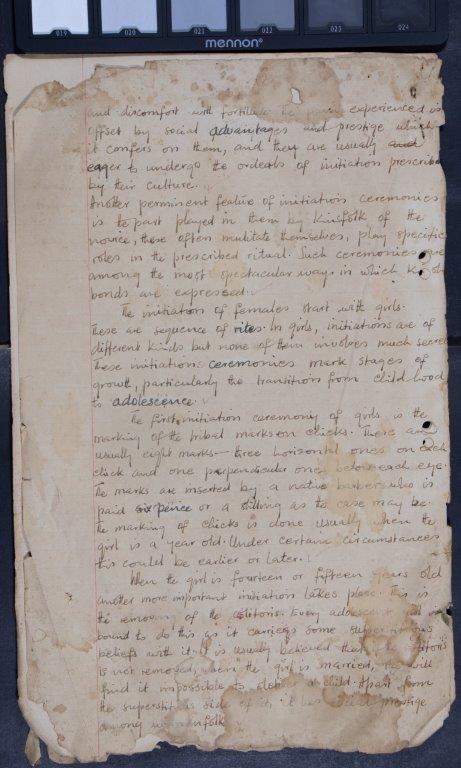 019 020 021 022 023 024
mennon®
and discomfort with fortitude the pain experienced is
offset by social advantages and prestige which
it confers on them, and they are usually and
eager to undergo the ordeals of initiation prescribed
by their culture.
Another perminent feature of initiation ceremonies
is the part played in them by kinsfolk of the
novice, these often mutilate themselves, play specific
roles in the prescribed ritual. Such ceremonies are
among the most spectacular ways in which
bonds are expressed.
The initiation of females start with girls.
These are sequence of rites. In girls, initiations are of
different kinds but none of them involves much secrecy
These initiations ceremonies mark stages of
growth, particularly the transition from child hood
to adolescence.
The first initiation ceremony of girls is the
marking of the tribal marks on chicks. There are
usually eight marks - three horizontal ones on each
chick and one perpendicular one below each eye.
The marks are inserted by a native barber who is
paid six pence or a shilling as the case may be.
The marking of chicks is done usually when the
girl is a year old. Under certain circumstances
this could be earlier or later.
When the girl is fourteen or fifteen years old
another more important initiation takes place. This is
the removing of the clitoris. Every adolescent
bound to do this as it carries some superstitious
beliefs with it. It is usually believed that
is not removed, when the girl is married, she will
find it impossible to a child. Apart from
the superstitious side of it, it has prestige
among womenfolk